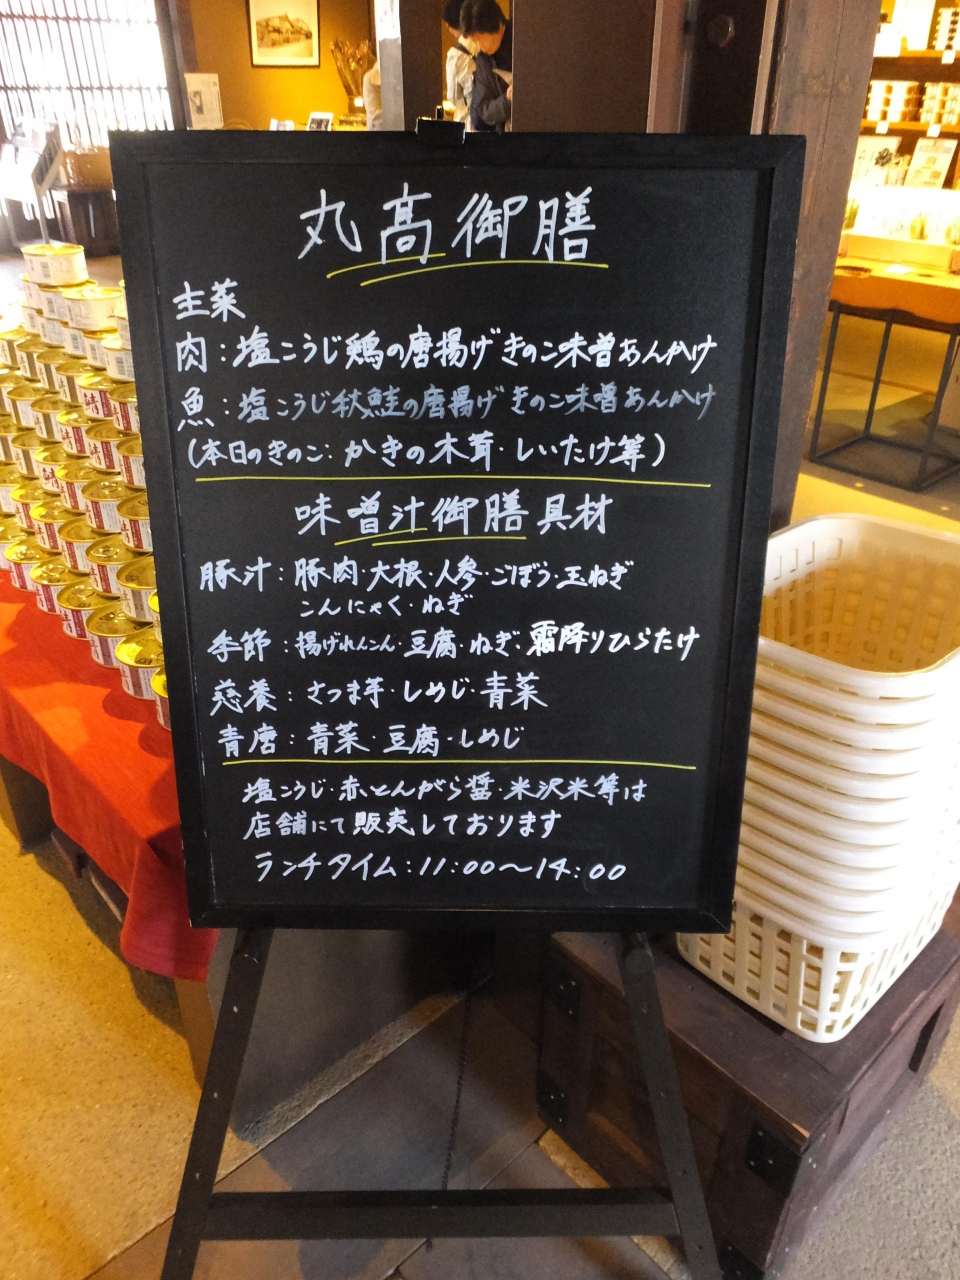 丸高御膳
主菜
肉:塩こうじ鶏の唐揚げきのこ味噌あんかけ
魚:塩こうじ秋鮭の唐揚げきのこ味噌あんかけ
(本日のきのこ:かきの木茸・しいたけ等)
味噌汁御膳具材
豚汁:豚肉・大根・人参・ごぼう・玉ねぎ
こんにゃく・ねぎ
季節:揚げれんこん・豆腐・ねぎ・霜降りひらたけ
慈養:さつま芋・しめじ・青菜
青唐:青菜・豆腐・しめじ
塩こうじ・赤とんがら醤・米沢米等は
店舗にて販売しております
ランチタイム:11:00〜14:00